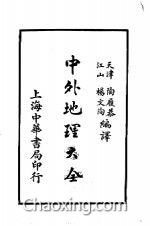 天津 陶履恭
江山 楊文洵 編譯
中外地理大全
上海中華書局印行
Chaoxing.com